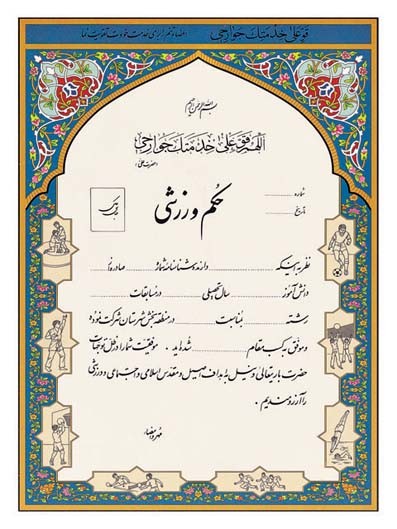 قو علی خدمتک جوارحی
اعضاء و تنم را برای خدمت خودت تقویت نما
بسم الله الرحمن الرحیم
اللهم قو علی خدمتک جوارحی
(حضرت علی ع)
شماره
تاریخ
حکم ورزشی
نظر به اینکه دارنده شناسنامه شماره صادره از
دانش آموز سال تحصیلی در مسابقات
رشته بمناسبت در منطقه بخش شهرستان شرکت نموده
و موفق به کسب مقام شده اید . موفقیت شما را در ظل توجهات
حضرت باریتعالی و نیل به اهداف اصیل و مقدس اسلامی و اجتماعی و ورزشی
را آرزومندیم .
مهر و امضاء